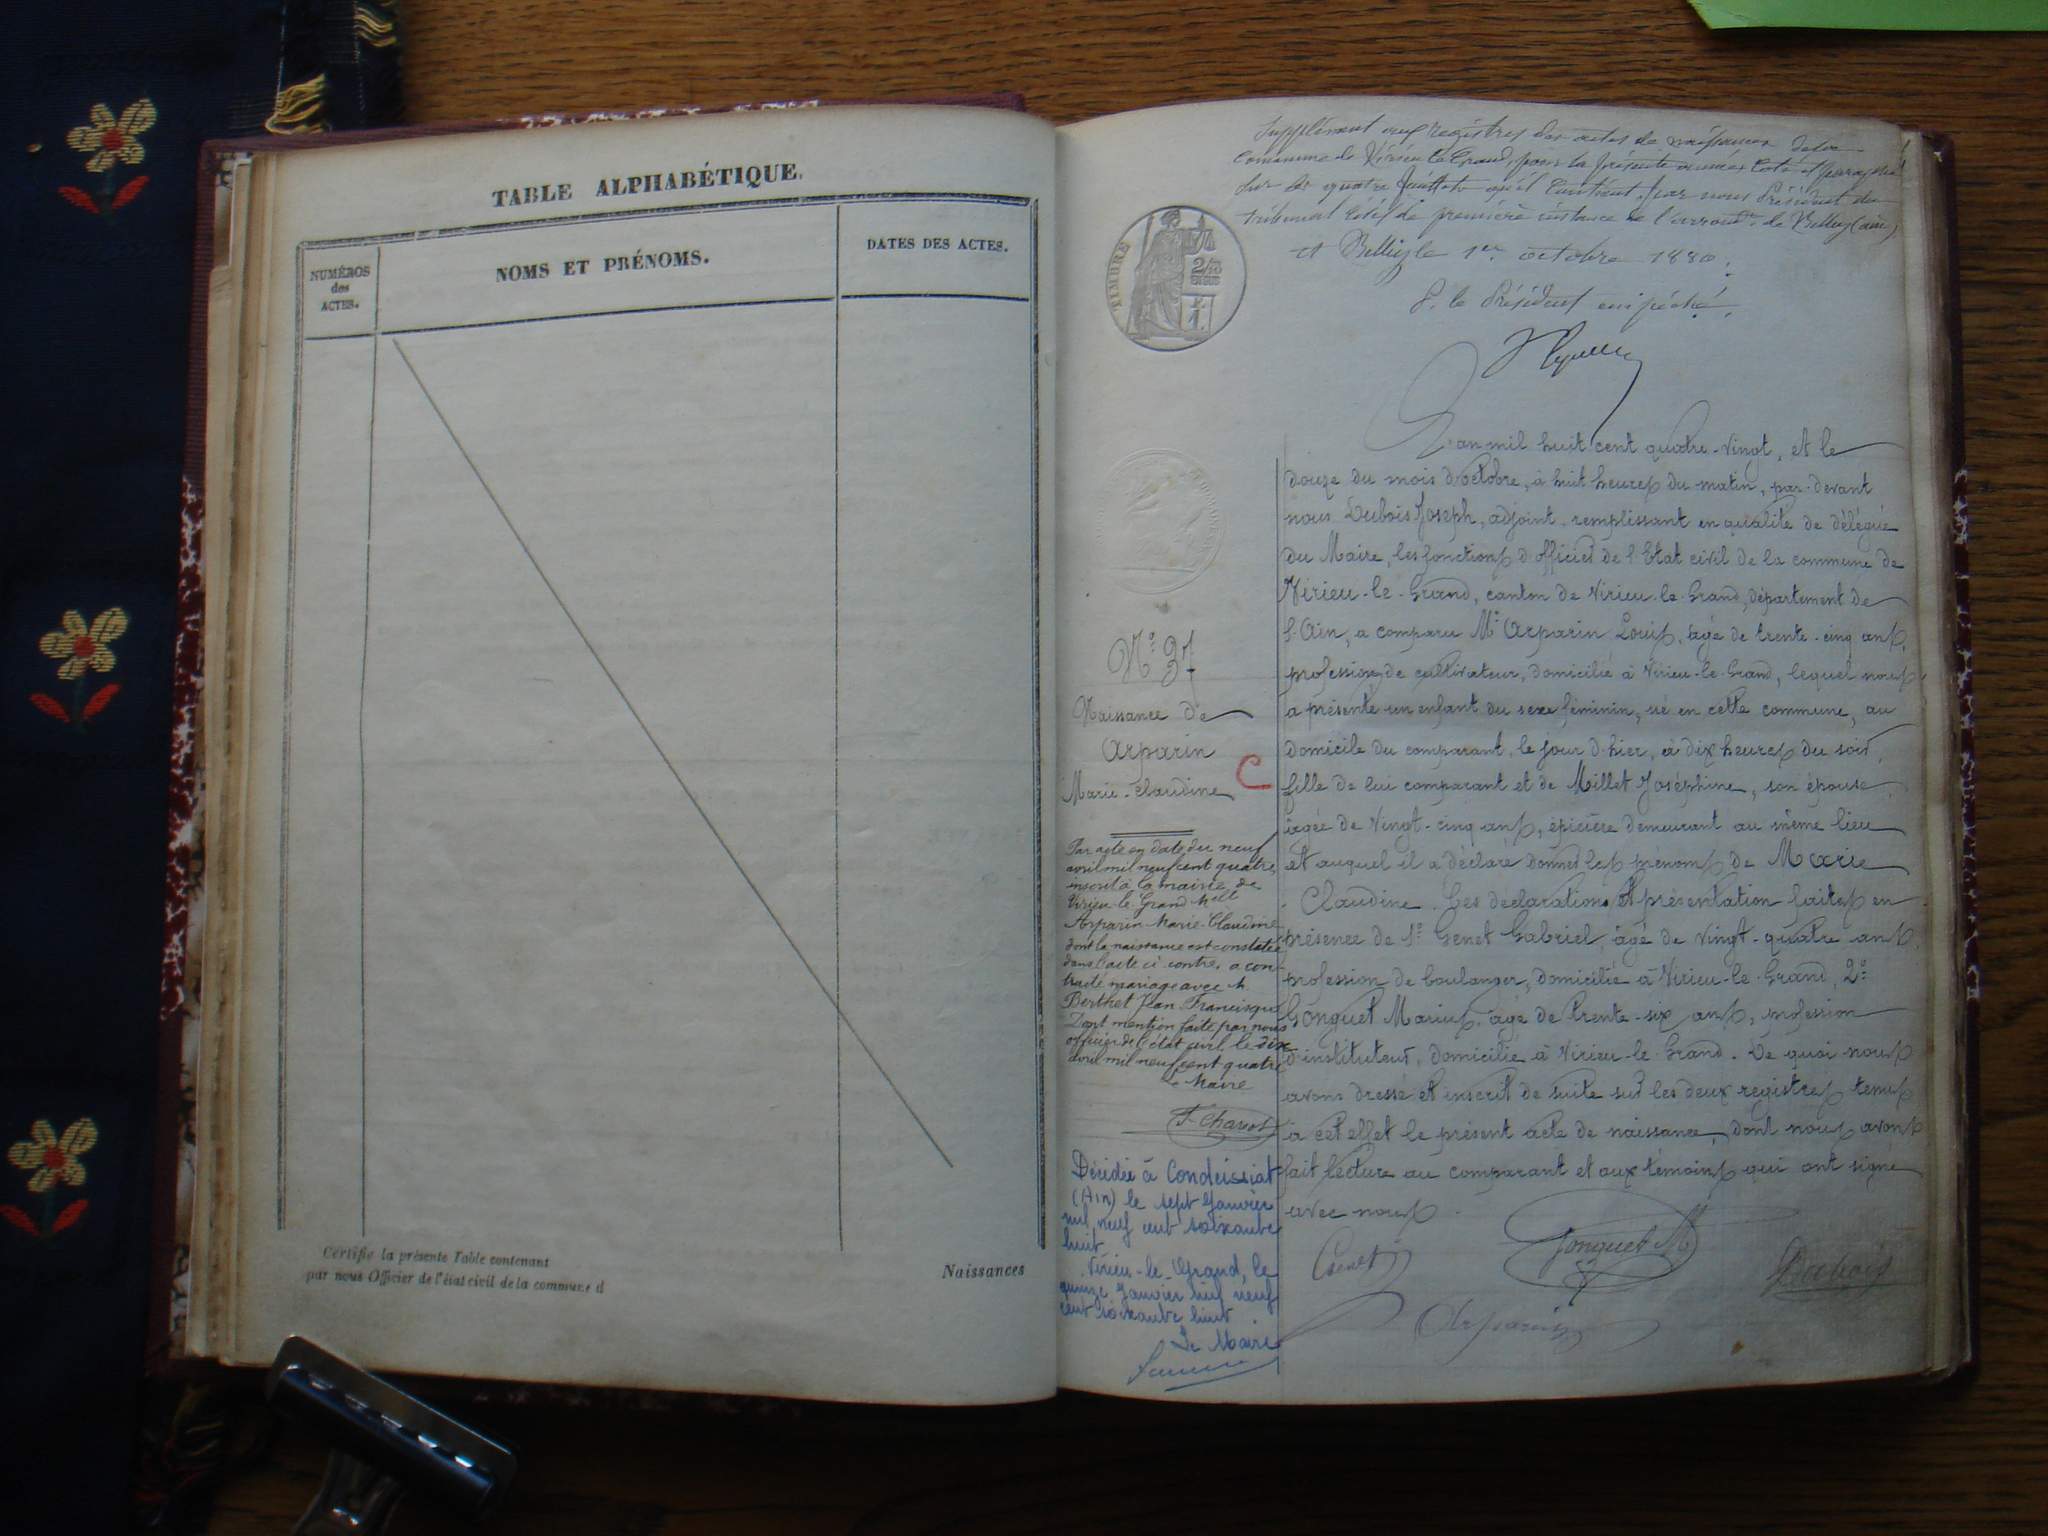 TABLE ALPHABÉTIQUE.
NUMÉROS
des
ACTES.
NOMS ET PRÉNOMS.
DATES DES ACTES.
Certifié la présente Table contenant
par nous Officier de l'état civil de la commune d
Naissances
Supplément aux registres des actes de naissances de la
commune de Virieu le Grand, pour la présente année, coté et paraphé
sur les quatre feuillets qu'il contient, par nous Président du
tribunal civil de première instance de l'arrondt. de Belley (ain)
A Belley le 1er octobre 1880.
P. le Président empêché,
TIMBRE
N° 37
Naissance de
Arparin
Marie-Claudine
C
Par acte en date du neuf
avril mil neuf cent quatre
inscrit à la mairie de
Virieu-le-Grand Melle
Arparin Marie-Claudine
dont la naissance est constatée
dans l'acte ci-contre, a con-
tracté mariage avec M.
Berthet Jean Francisque
Dont mention faite par nous
officier de l'état civil, le dix
avril mil neuf cent quatre
Le Maire
Décédée à Condeissiat
(Ain) le sept Janvier
mil neuf cent soixante
huit
Virieu-le-Grand, le
quinze Janvier mil neuf
cent soixante huit
Le Maire
L'an mil huit cent quatre-vingt, et le
douze du mois d'octobre, à huit heures du matin, par-devant
nous Dubois Joseph, adjoint, remplissant en qualité de délégué
du Maire, les fonctions d'officier de l'Etat civil de la commune de
Virieu-le-Grand, canton de Virieu-le-Grand, département de
l'Ain, a comparu Mr Arparin Louis, âgé de trente-cinq ans,
profession de cultivateur, domicilié à Virieu-le-Grand, lequel nous
a présenté un enfant du sexe féminin, né en cette commune, au
domicile du comparant, le jour d'hier, à dix heures du soir,
fille de lui comparant et de Millet Joséphine, son épouse,
âgée de vingt-cinq ans, épicière demeurant au même lieu
et auquel il a déclaré donner les prénoms de Marie
Claudine. Les déclarations et présentation faites en
présence de 1° Genet Gabriel, âgé de vingt-quatre ans,
profession de boulanger, domicilié à Virieu-le-Grand, 2°
Gonguet Marius, âgé de trente-six ans, profession
d'instituteur, domicilié à Virieu-le-Grand. De quoi nous
avons dressé et inscrit de suite sur les deux registres tenus
à cet effet le présent acte de naissance, dont nous avons
fait lecture au comparant et aux témoins qui ont signé
avec nous.
Genet Gonguet M Dubois
Arparin